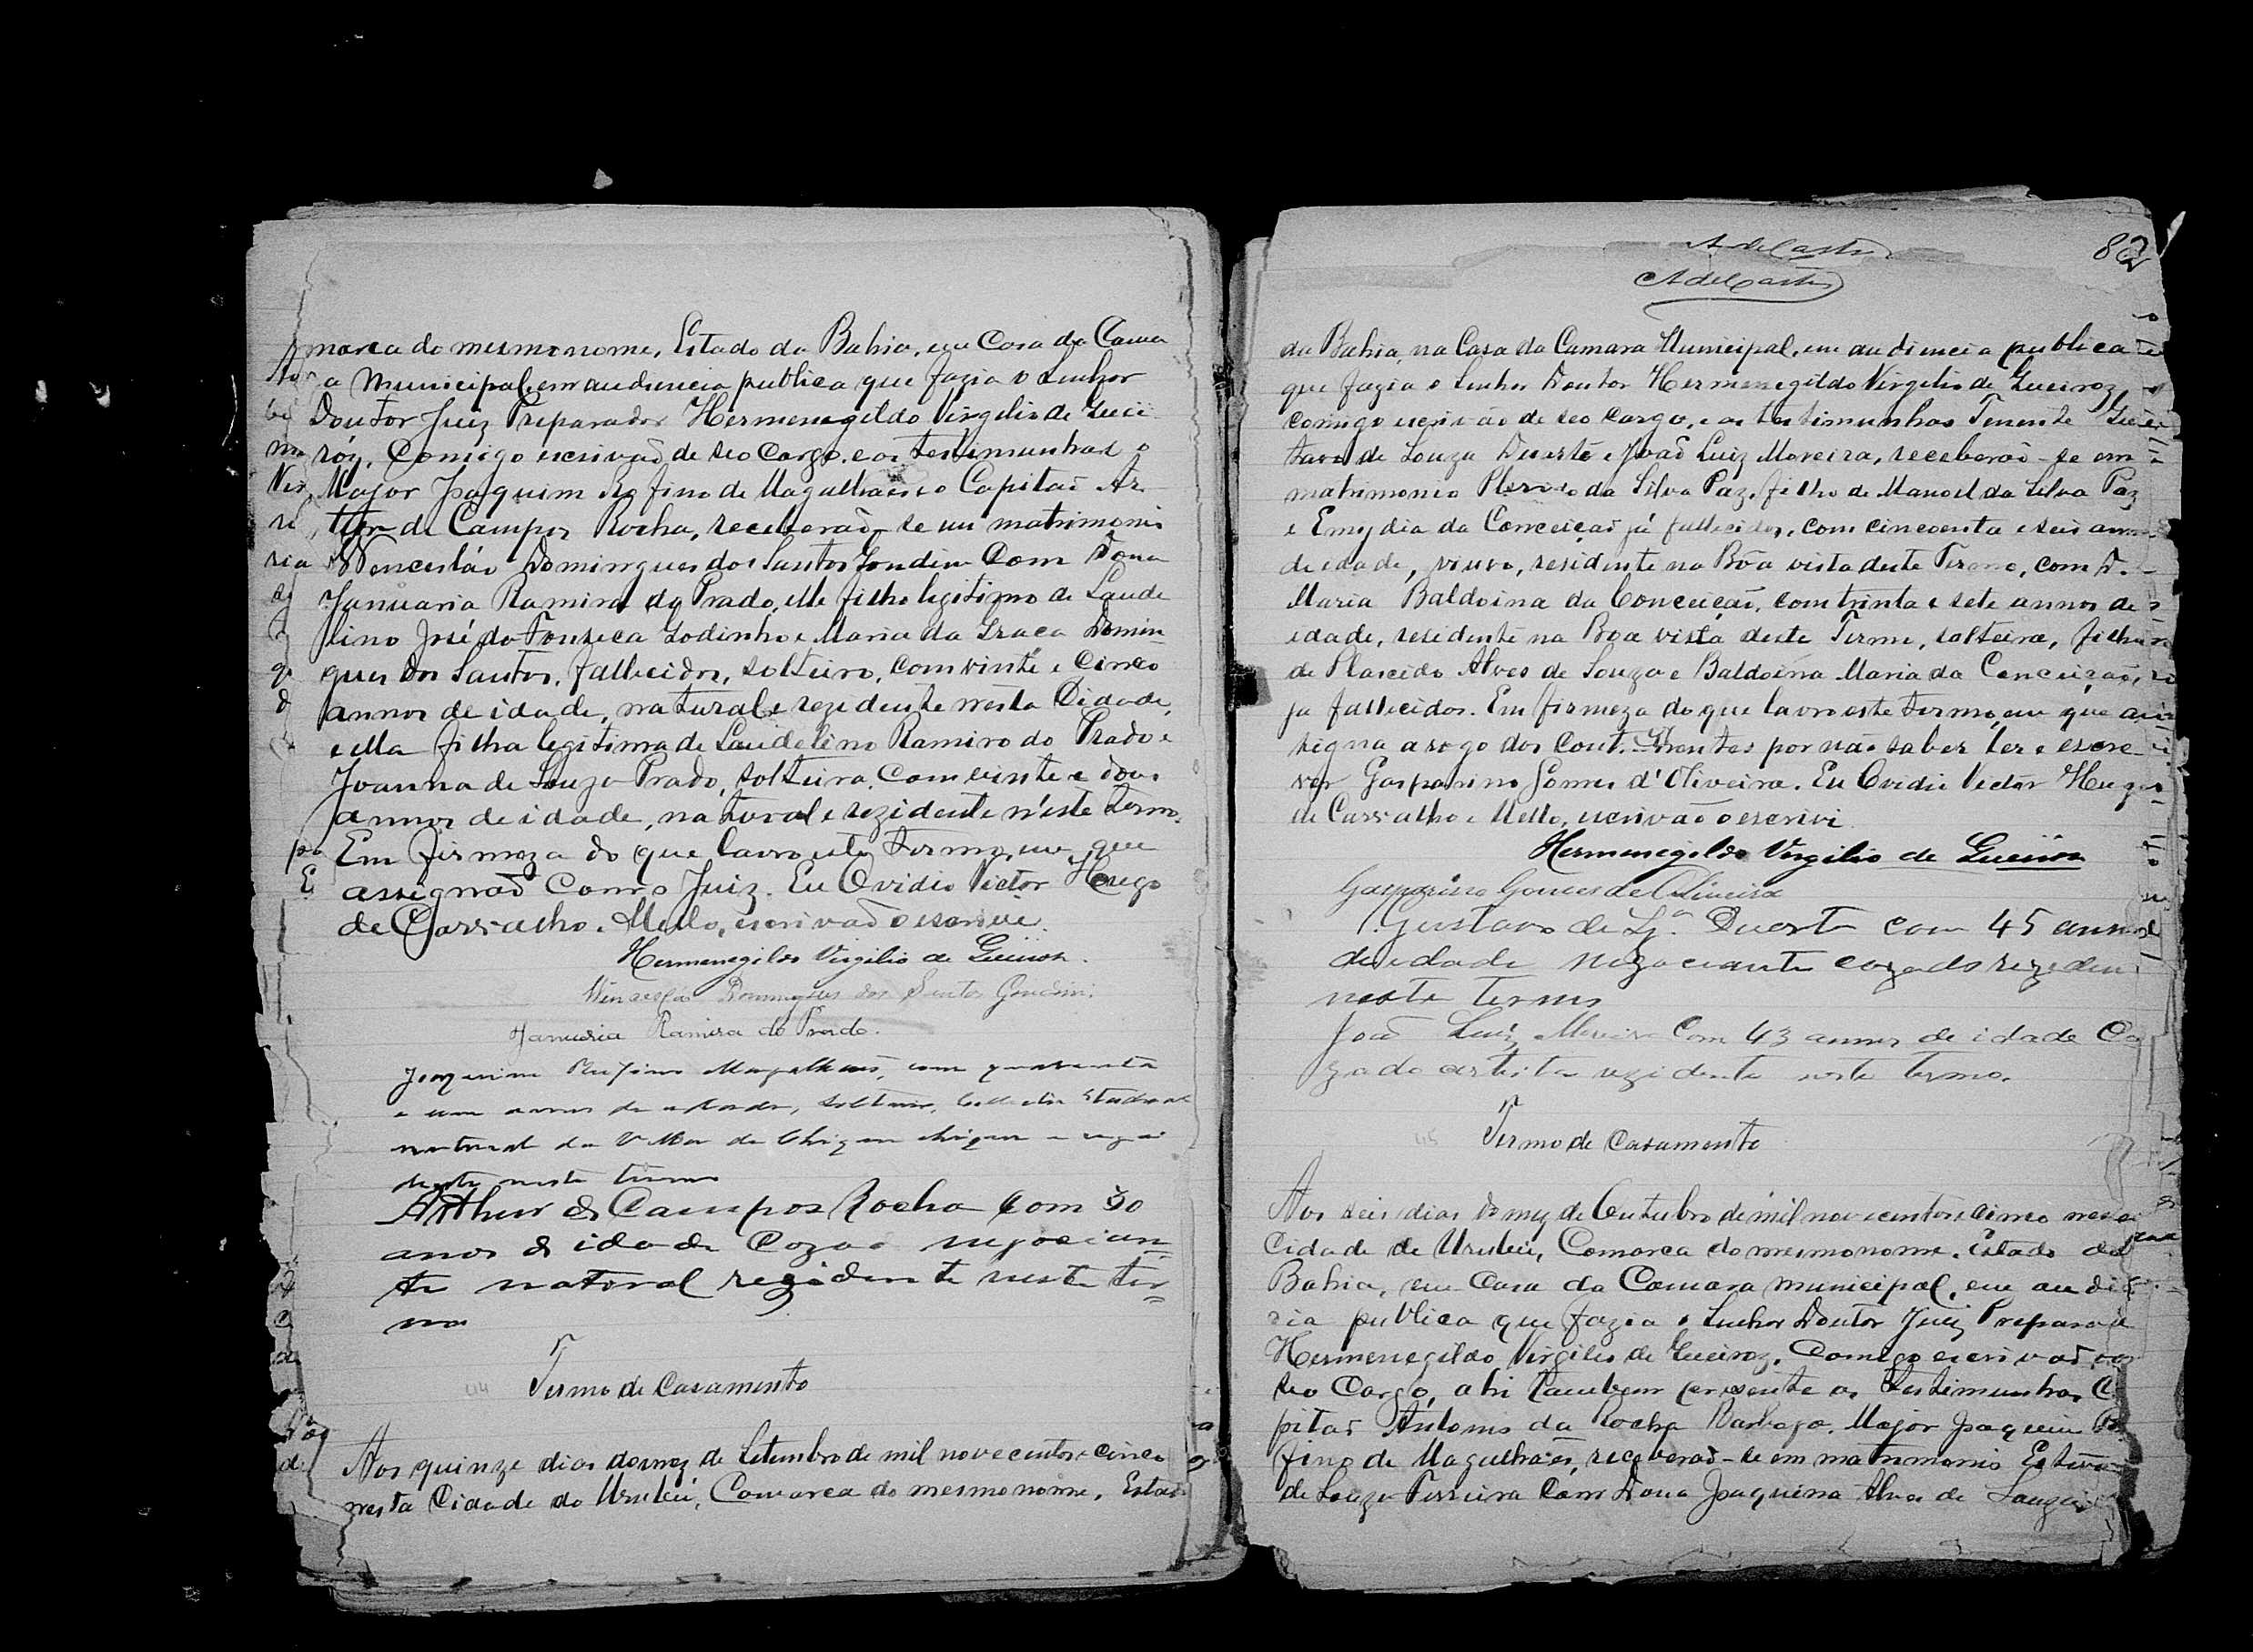 marca do mesmo nome, Estado da Bahia, em Casa da Cama
a Municipal, em audiencia publica que fazia o Senhor
Doutor Juiz Preparador Hermenegildo Virgilio de Guei
róz, Comigo escrivaõ de seo Cargo, e as testimunhas o
Major Joaquim Rofino de Magalhaes e o Capitaõ Ar
tur de Campos Rocha, receberaõ-se em matrimonio
Wenceslaó Domingues dos Santos Gondim Com Dona
Januaria Ramira do Prado, elle filho legitimo de Laude
lino José da Fonseca Godinho e Maria da Graça Domin
gues dos Santos, fallecidos, solteiro, com vinte e Cinco
annos de idade, natural e rezidente nesta Cidade,
e ella filha legitima de Laudelino Ramiro do Prado e
Joanna de Souza Prado, solteira, Com vinte e dous
annos de idade, natural e rezidente n'este termo.
Em firmeza do que lavro este termo, em que
assignaõ Com o Juiz. Eu Ovidio Victor Hugo
de Carvalho e Mello, escrivaõ o escrivi.
Hermenegildo Virgilio de Gueiroz.
Wenceslão Domingues dos Santos Gondim.
Januaria Ramira do Prado.
Joaquim Rufino Magalhães, com quarenta
e um annos de idade, solteiro, Collector Estadual
natural da Villa de Chique chique e rezi
dente neste termo
Arthur de Campos Rocha com 30
anos de idade Cazado negocian
te natural rezidente neste ter
mo
114 Termo de Casamento
Aos quinze dias do mez de Setembro de mil novecentos e cinco
nesta Cidade do Urubú, Comarca do mesmo nome, Estado
A de Castro
A de Castro
82
da Bahia, na Casa da Camara Municipal, em audiencia publica
que fazia o Senhor Doutor Hermenegildo Virgilio de Gueiroz,
comigo escrivão de seo cargo, e as testimunhas Tenente Gus
tavo de Souza Duarte e Joaõ Luiz Moreira, receberaõ-se em
matrimonio da Silva Paz, filho de Manoel da Silva Paz
e Emydia da Conceiçaõ já fallecidos, com cincoenta e seis annos
de idade, viuvo, residente na Bôa vista deste Termo, com D.
Maria Baldoina da Conceição, com trinta e sete annos de
idade, residente na Boa vista deste Termo, solteira, filha
de Placido Alves de Souza e Baldoina Maria da Conceição,
ja fallecidos. Em firmeza do que lavro este termo, em que as
signa a rogo dos Contrahentes por não saber ler e escre
ver Gasparino Gomes d'Oliveira. Eu Ovidio Victor Hugo
de Carvalho e Mello, escrivão o escrivi
Hermenegildo Virgilio de Gueiroz
Gasparino Gomes de Oliveira
Gustavo de Sz.ª Duarte com 45 annos
de idade negociante cazado reziden
neste termo
Joaõ Luiz Moreira Com 43 annos de idade Ca
zado artista rezidente neste termo.
115 Termo de Casamento
Aos seis dias do mez de Outubro de mil novecentos e cinco nesta
Cidade de Urubú, Comarca do mesmo nome, Estado da
Bahia, em Casa da Camara municipal, em audien
cia publica que fazia o Senhor Doutor Juiz Preparador
Hermenegildo Virgilio de Gueiroz, Comigo escrivaõ
seo Cargo, ahi tambem presente as testimunhas Ca
pitaõ Antonio da Rocha Barbosa, Major Joaquim Ro
fino de Magalhães, receberaõ-se em matrimonio Estevão
de Souza Ferreira Com Dona Joaquina Alves de Souza